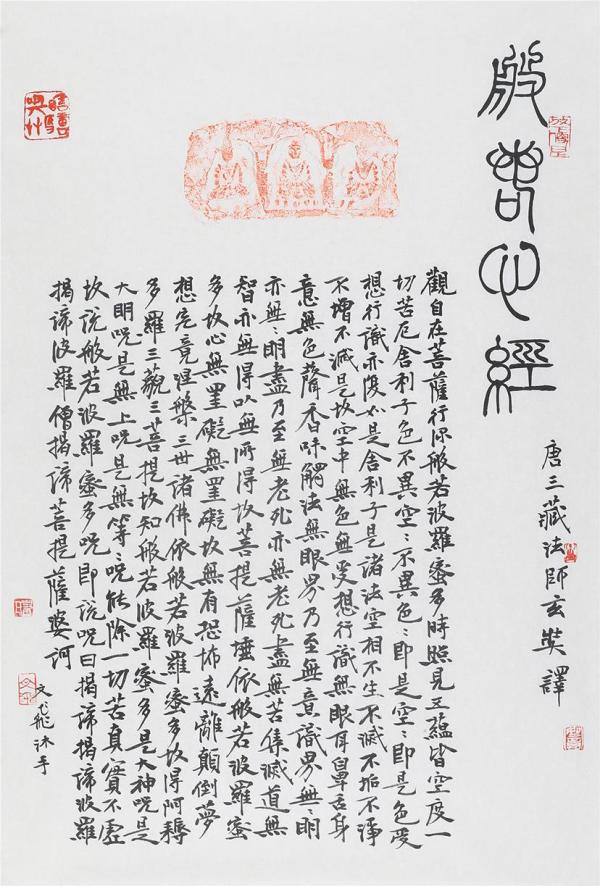 般若心經
唐三藏法師玄奘譯
觀自在菩薩行深般若波羅蜜多時照見五蘊皆空度一
切苦厄舍利子色不異空〻不異色〻即是空〻即是色受
想行識亦復如是舍利子是諸法空相不生不滅不垢不淨
不增不減是故空中無色無受想行識無眼耳鼻舌身
意無色聲香味觸法無眼界乃至無意識界無〻明
亦無〻明盡乃至無老死亦無老死盡無苦集滅道無
智亦無得以無所得故菩提薩埵依般若波羅蜜
多故心無罣礙無罣礙故無有恐怖遠離顛倒夢
想究竟涅槃三世諸佛依般若波羅蜜多故得阿耨
多羅三藐三菩提故知般若波羅蜜多是大神呪是
大明呪是無上呪是無等〻呪能除一切苦真實不虛
故說般若波羅蜜多呪即說呪曰揭諦揭諦波羅
揭諦波羅僧揭諦菩提薩婆訶
沐手